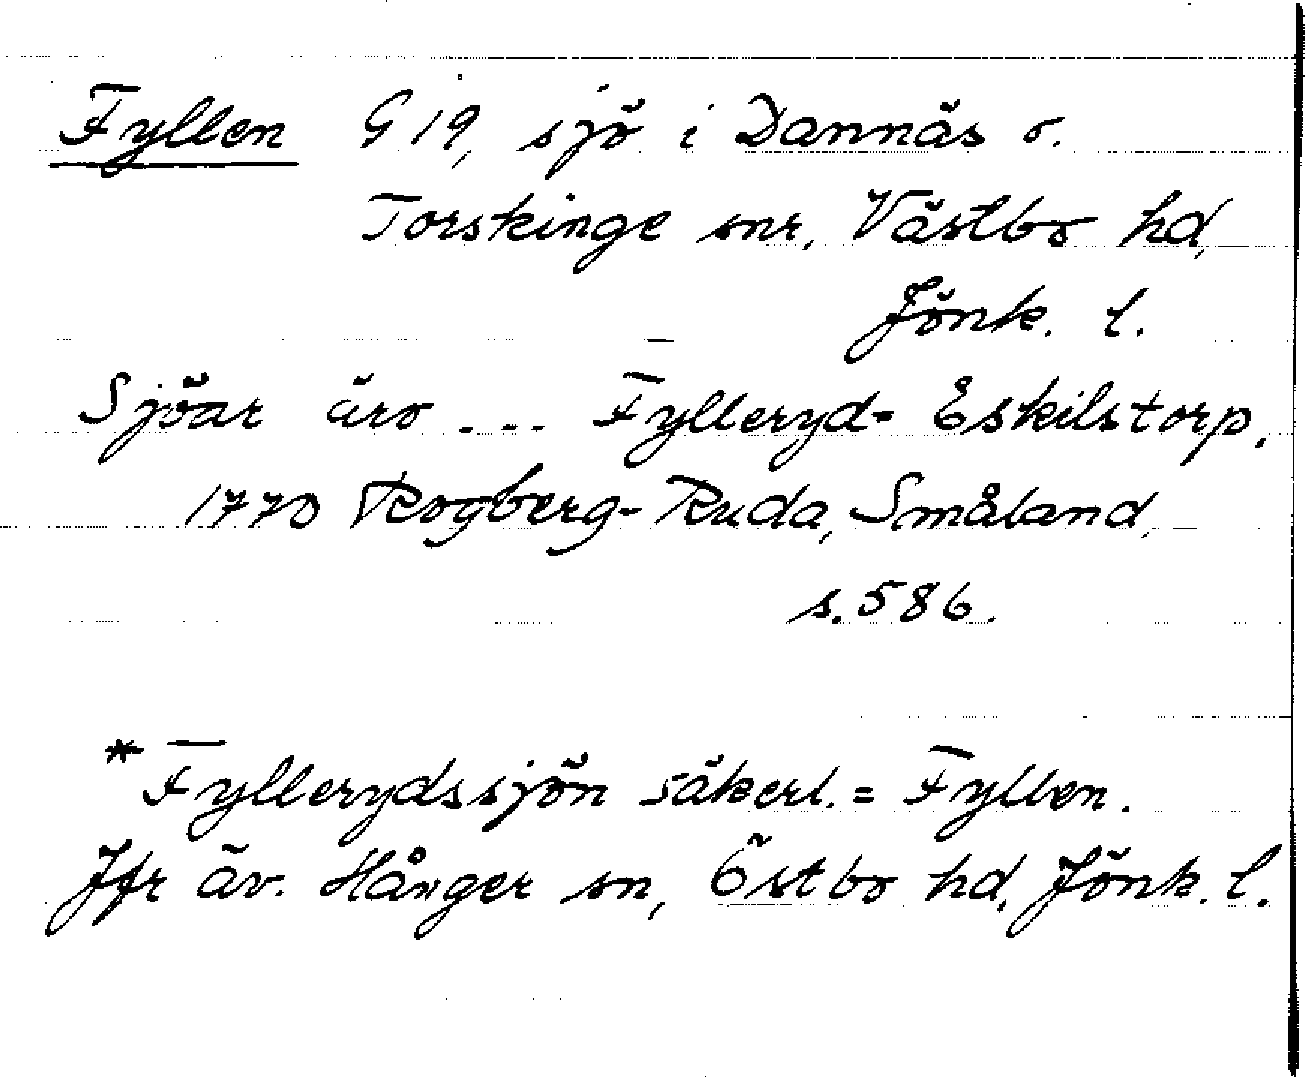 Fyllen G 19, sjö i Dannäs o.
Torskinge snr, Västbo hd,
Jönk. l.
Sjöar äro ... Fylleryd- Eskilstorp.
1770 Rogberg-Ruda, Småland,
s. 586.
*Fyllerydssjön säkerl. = Fyllen.
Jfr äv. Hånger sn, Östbo hd, Jönk. l.